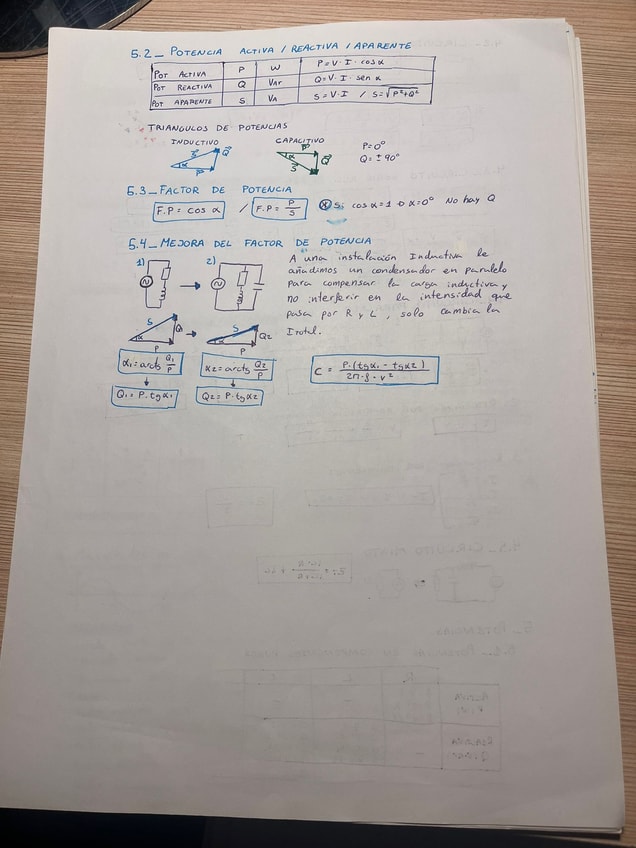 5.2_ POTENCIA ACTIVA / REACTIVA / APARENTE
POT ACTIVA P W P=V·I·cosα
POT REACTIVA Q VAr Q=V·I·sen α
POT APARENTE S VA S=V·I / S=√P²+Q²
TRIANGULOS DE POTENCIAS
INDUCTIVO CAPACITIVO
S Q α P
P α S Q
P=0°
Q=±90°
5.3_FACTOR DE POTENCIA
F.P=cos α / F.P=P/S * Si cos α=1 o α=0° No hay Q
5.4_MEJORA DEL FACTOR DE POTENCIA
1) 2)
A una instalación Inductiva le
añadimos un condensador en paralelo
para compensar la carga inductiva y
no interferir en la intensidad que
pasa por R y L, solo cambia la
Itotal.
S Q1 α P
S Q2 α P
α1=arctg Q1/P α2=arctg Q2/P C = P·(tgα1-tgα2)/2π·f·V²
Q1=P·tgα1 Q2=P·tgα2